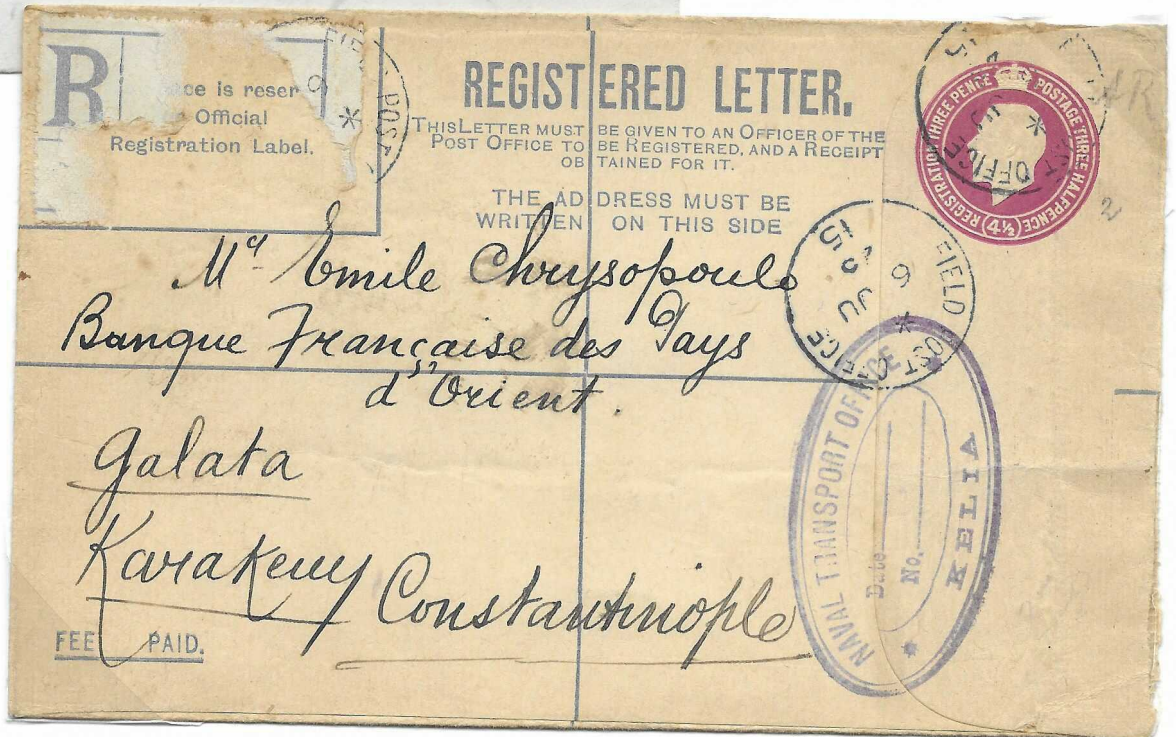 R
is reser
Official
Registration Label.
FIELD POST
9
REGISTERED LETTER.
THIS LETTER MUST BE GIVEN TO AN OFFICER OF THE
POST OFFICE TO BE REGISTERED, AND A RECEIPT
OBTAINED FOR IT.
THE ADDRESS MUST BE
WRITTEN ON THIS SIDE
REGISTRATION THREE PENCE POSTAGE THREE HALFPENCE (4½)
OFFICE
AR
2
FIELD POST OFFICE
9
15
Mr Emile Chrysopoulo
Banque Française des Pays
d'Orient.
Galata
Karakeuy Constantinople
FEE PAID.
NAVAL TRANSPORT OFFICE
Date
No.
KELIA